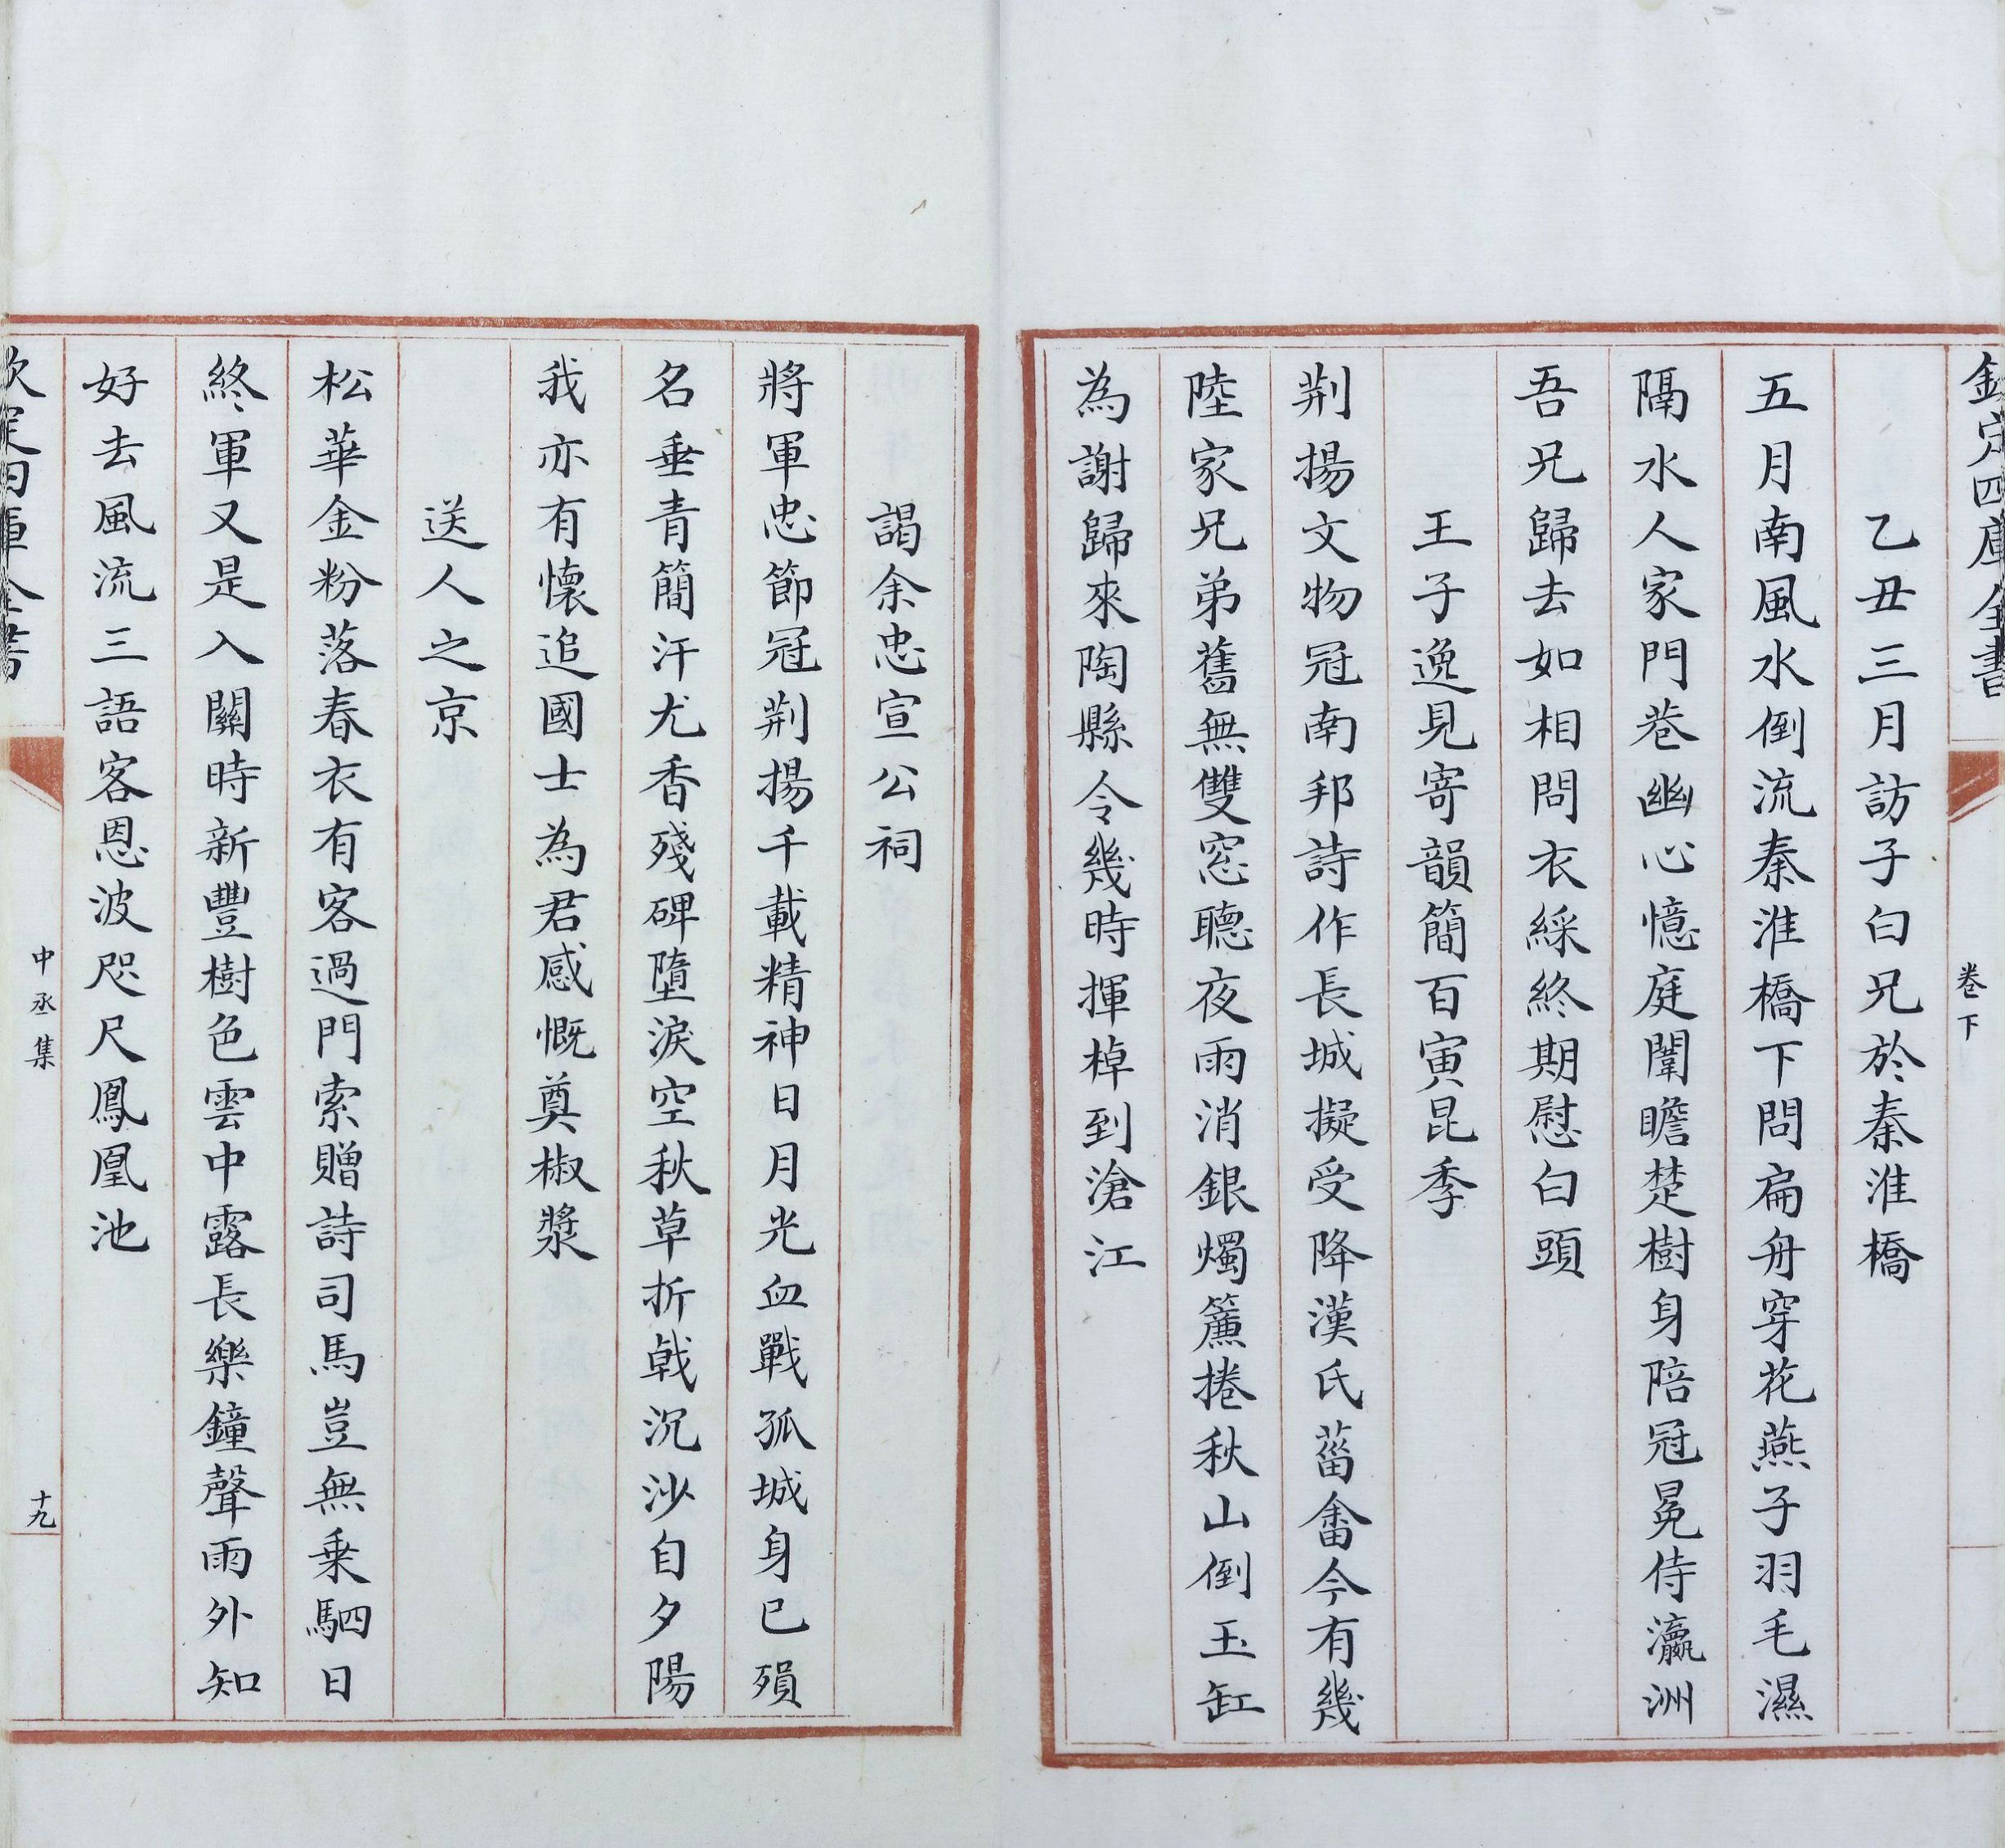 欽定四庫全書
卷下
乙丑三月訪子白兄於秦淮橋
五月南風水倒流秦淮橋下問扁舟穿花燕子羽毛濕
隔水人家門巷幽心憶庭闈瞻楚樹身陪冠冕侍瀛洲
吾兄歸去如相問衣綵終期慰白頭
王子逸見寄韻簡百寅昆季
荆揚文物冠南邦詩作長城擬受降漢氏菑畬今有幾
陸家兄弟舊無雙窓聽夜雨消銀燭簾捲秋山倒玉缸
為謝歸來陶縣令幾時揮棹到滄江
謁余忠宣公祠
將軍忠節冠荆揚千載精神日月光血戰孤城身已殞
名垂青簡汗尤香殘碑墮淚空秋草折戟沉沙自夕陽
我亦有懷追國士為君感慨奠椒漿
送人之京
松華金粉落春衣有客過門索贈詩司馬豈無乗駟日
終軍又是入關時新豐樹色雲中露長樂鐘聲雨外知
好去風流三語客恩波咫尺鳳凰池
欽定四庫全書
中丞集
十九